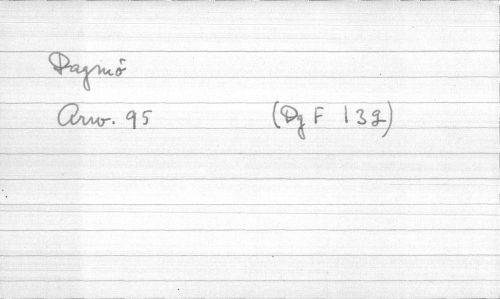 Dagmö
Arw. 95 (Dg F 132)